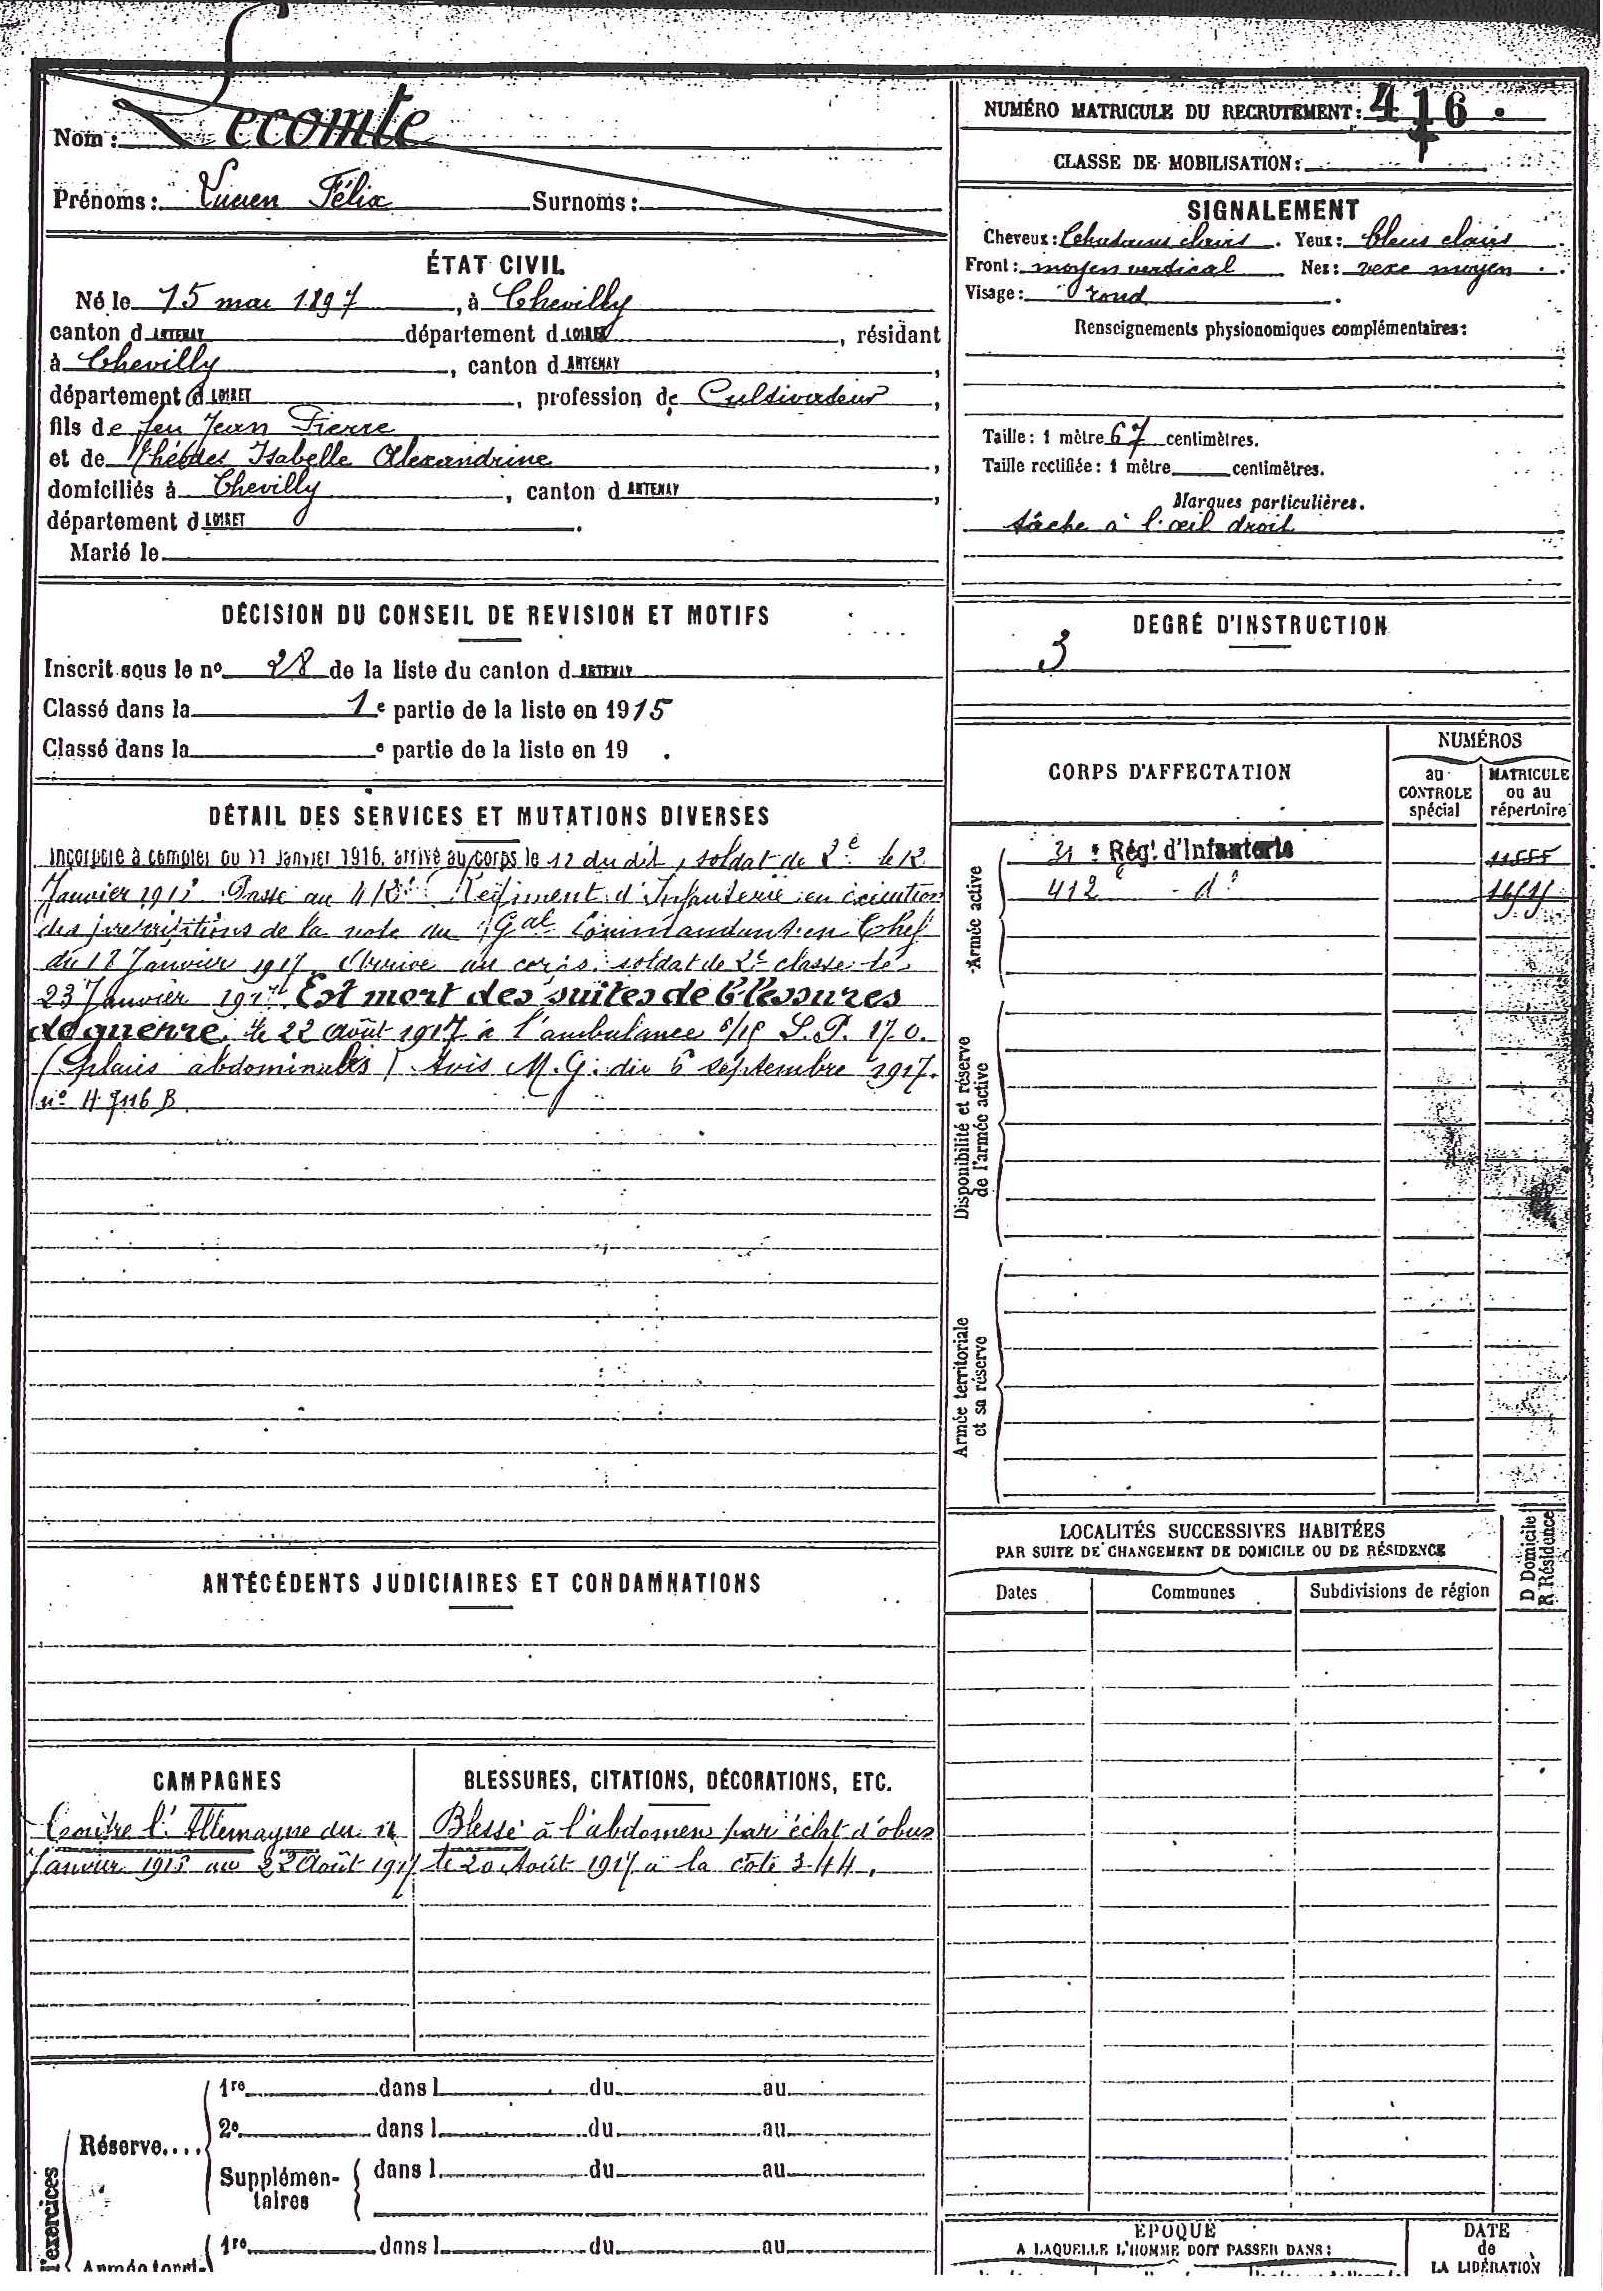 Nom : Lecomte
Prénoms : Lucien Félix Surnoms :
ÉTAT CIVIL
Né le 15 mai 1897, à Chevilly
canton d ARTENAY département d LOIRET, résidant
à Chevilly, canton d ARTENAY,
département d LOIRET, profession de Cultivateur,
fils de feu Jean Pierre
et de Isabelle Alexandrine,
domiciliés à Chevilly, canton d ARTENAY,
département d LOIRET.
Marié le
DÉCISION DU CONSEIL DE REVISION ET MOTIFS
Inscrit sous le no 28 de la liste du canton d ARTENAY
Classé dans la 1e partie de la liste en 1915
Classé dans la e partie de la liste en 19 .
DÉTAIL DES SERVICES ET MUTATIONS DIVERSES
Incorporé à compter du 11 Janvier 1916, arrivé au corps le 12 du dit, soldat de 2e le 12
Janvier 191 Passé au 412e Régiment d'Infanterie en exécution
des prescriptions de la note du Gal Commandant en Chef
du 18 Janvier 1917 Arrivé au corps soldat de 2e classe le
23 Janvier 191 Est mort des suites de blessures
de guerre, le 22 Août 1917 à l'ambulance S.P. 170.
(plaies abdominales) Avis M.G. du 6 septembre 1917.
no H 7116 B
ANTÉCÉDENTS JUDICIAIRES ET CONDAMNATIONS
CAMPAGNES
Contre l'Allemagne du
Janvier 191 au 22 Août 1917
BLESSURES, CITATIONS, DÉCORATIONS, ETC.
Blessé à l'abdomen par éclat d'obus
le 20 Août 1917 à la côte 344.
d'exercices
Réserve....
1re dans l du au
2e dans l du au
Supplémentaires dans l du au
Armée terri-
1re dans l du au
NUMÉRO MATRICULE DU RECRUTEMENT : 416.
CLASSE DE MOBILISATION :
SIGNALEMENT
Cheveux : Châtains clairs. Yeux : bleus clairs
Front : moyen vertical Nez : vexe moyen
Visage : rond.
Renseignements physionomiques complémentaires :
Taille : 1 mètre 67 centimètres.
Taille rectifiée : 1 mètre centimètres.
Marques particulières.
tâche à l'œil droit
DEGRÉ D'INSTRUCTION
3
CORPS D'AFFECTATION
NUMÉROS
au CONTROLE spécial
MATRICULE ou au répertoire
Armée active
31e Régt. d'Infanterie 11555
412e do
Disponibilité et réserve de l'armée active
Armée territoriale et sa réserve
LOCALITÉS SUCCESSIVES HABITÉES
PAR SUITE DE CHANGEMENT DE DOMICILE OU DE RÉSIDENCE
Dates Communes Subdivisions de région
D Domicile
R Résidence
ÉPOQUE
A LAQUELLE L'HOMME DOIT PASSER DANS :
DATE
de
LA LIBÉRATION